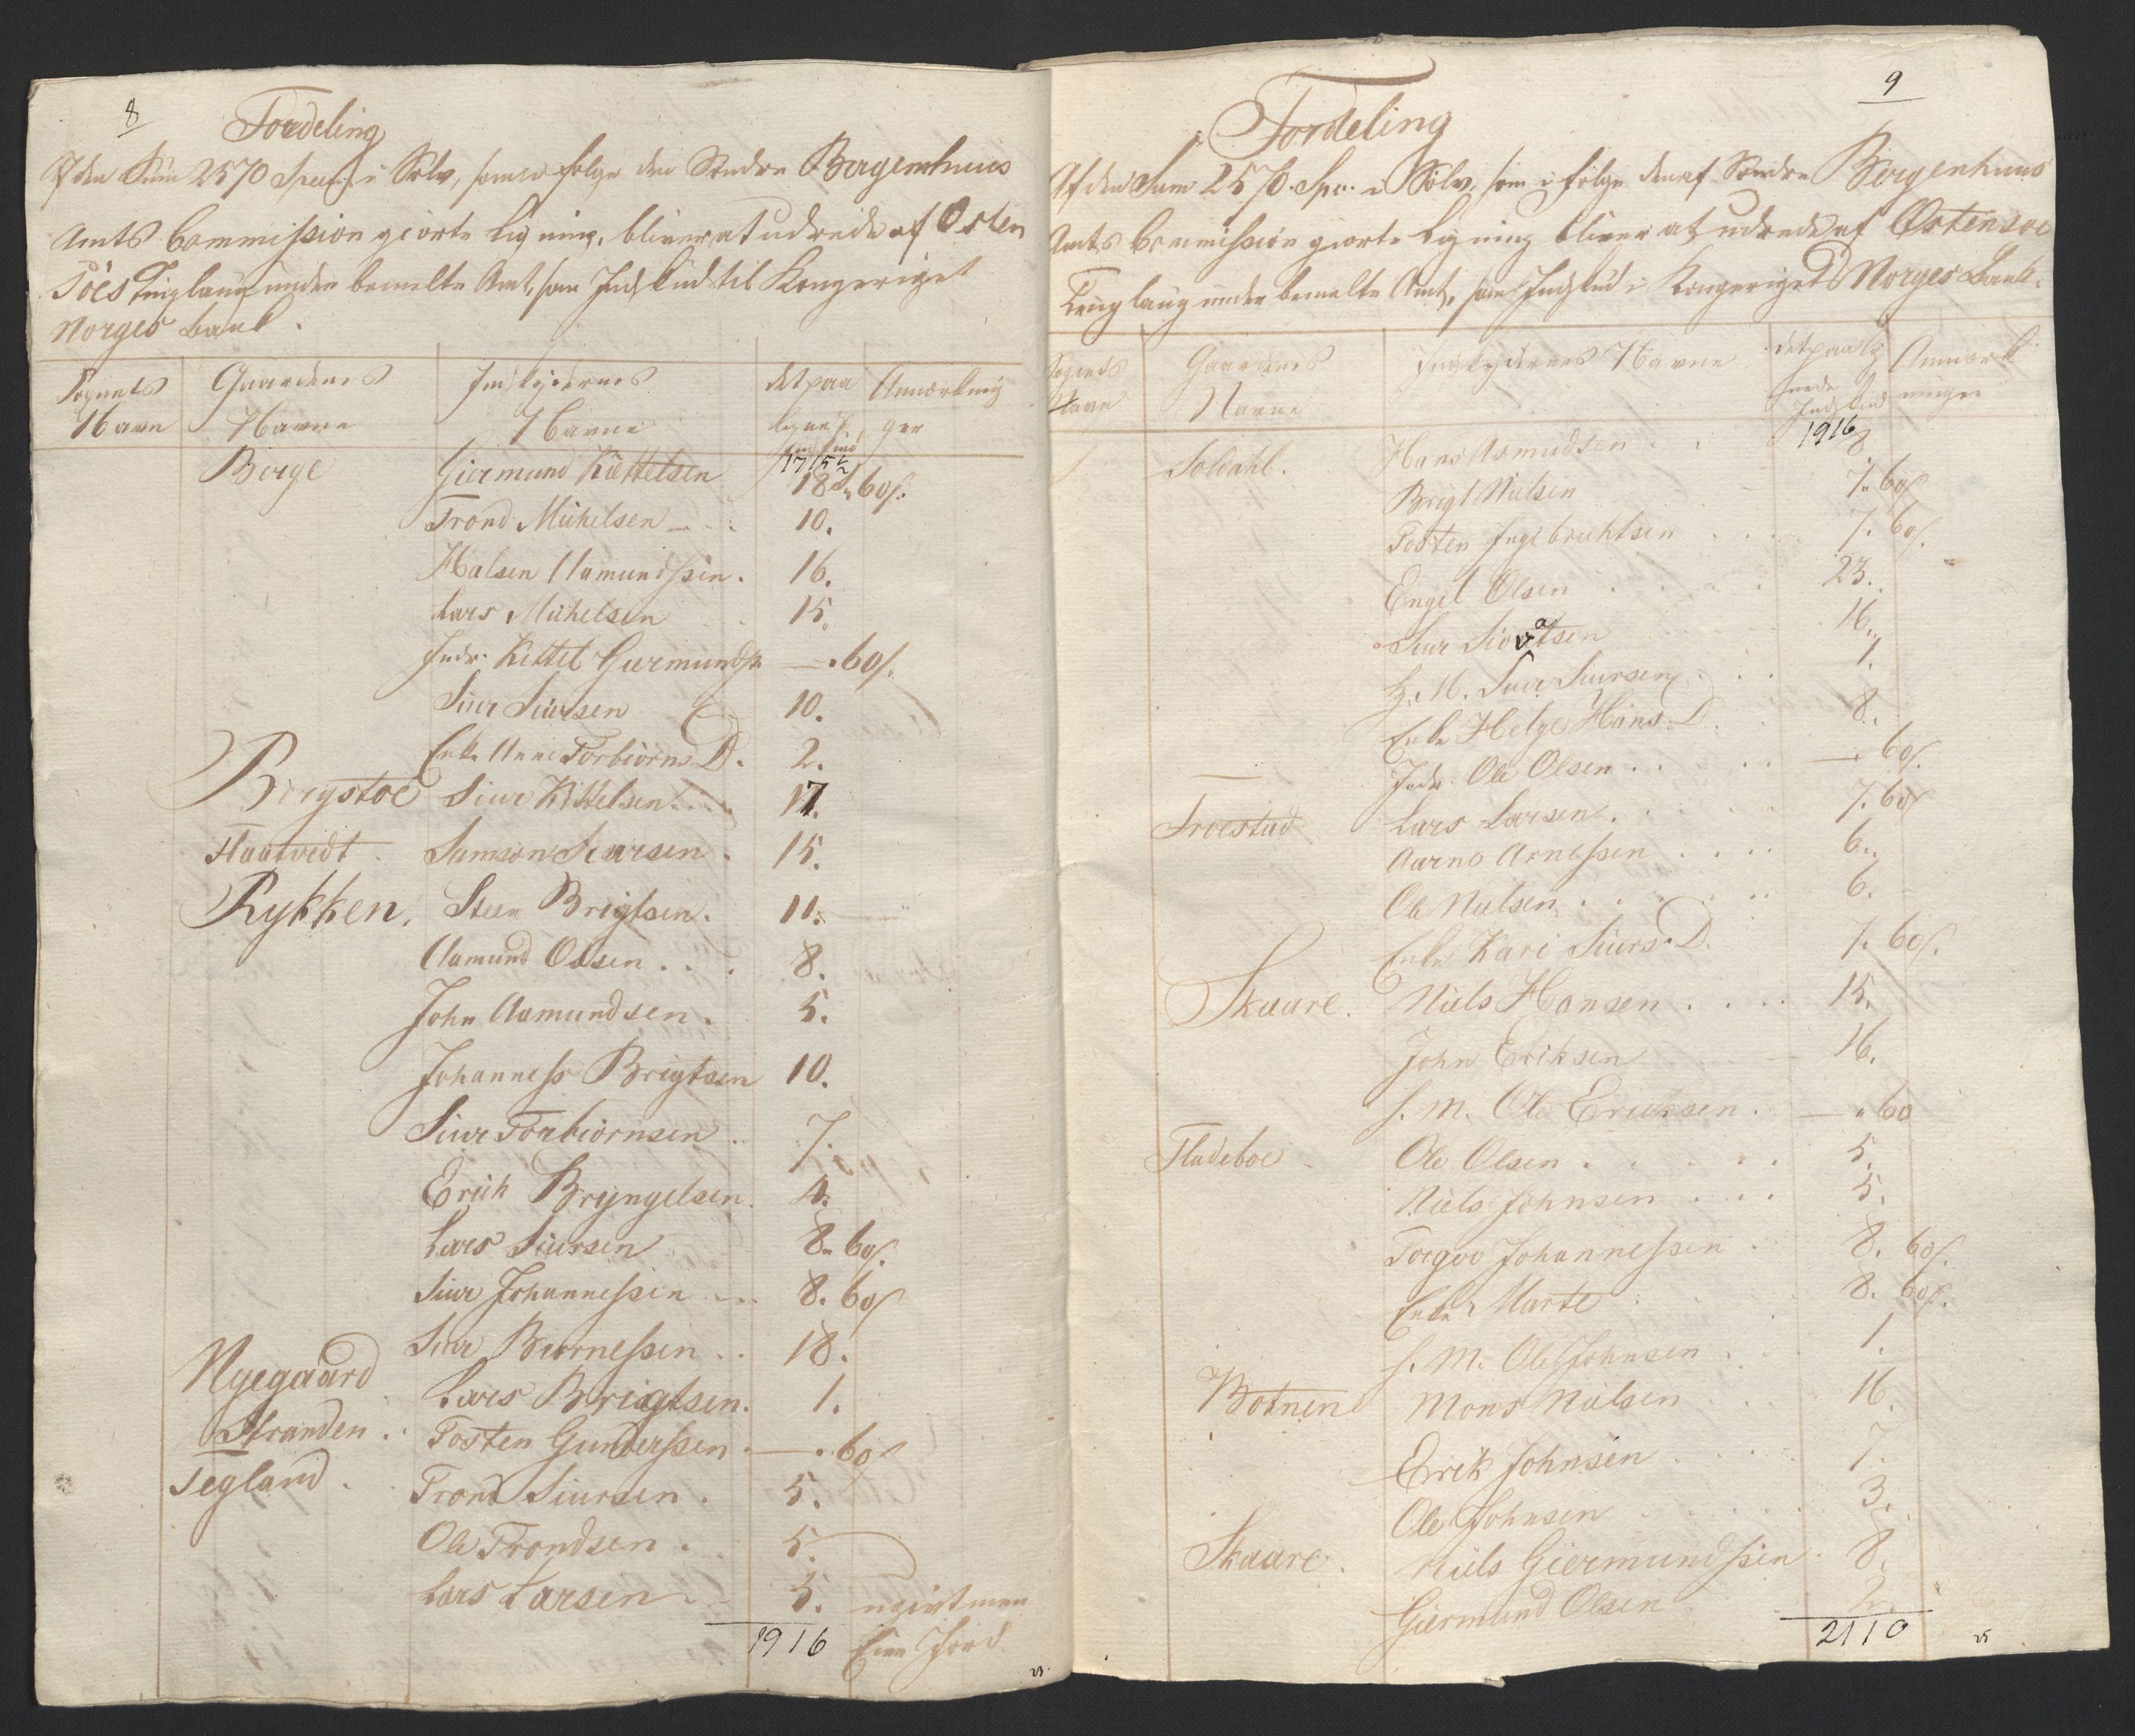 8
Fordeling
Af den Sum 2570 Specier i Sølv, som i følge den Søndre Bergenhuus
Amts Commission giorte Ligning, bliver at udrede af Østen
Søes Tinglaug under bemelte Amt, som Indskud til Kongeriget
Norges Bank.
Sognets Navn | Gaardenes Navne | Indskydernes Navne | det paa lignede Indskud | Anmærkninger
1715 1/2
Borge Giermund Kiettelsen 18. 60s.
Trond Michelsen 10.
Halsen Aamundssen. 16.
Lars Michelsen 15.
Inds: Kittel Giermunds. — . 60s.
Siur Siursen 10.
Enke Anne Torbiørns D. 2.
Bergstøe Siur Kittelsen 17.
Flaatvedt. Samson Siursen. 15.
Rykken. Steen Brigtsen. 11.
Aamund Olsen 8.
John Aamundsen. 5.
Johanness Brigtsen 10.
Siur Torbiørnsen 7.
Erich Bryngelsen. 4.
Lars Siursen 8. 60s.
Siur Johannessen 8. 60s
Siur Biørnessen 18.
Nyegaard Lars Brigtsen. 1.
Stranden. Tosten Gunderssen — . 60s
Tegland. Trond Siursen. 5.
Ole Trondsen. 5.
Lars Larsen 5. ugivt men
1916 Eier Jord
9
Fordeling
Af den Sum 2570. Spec. i Sølv, som i følge den af Søndre Bergenhuus
Amts Commission giorte Ligning bliver at udrede af Østensøe
Tinglaug under bemelte Amt, som Indskud i Kongeriget Norges Bank.
Sognets Navn | Gaardenes Navne | Indskydernes Navne | det paalignede Indskud | Anmærkninger
1916
Soldahl. Hans Asmudsen 8.
Brigt Nielsen 7. 60s
Tosten Ingebrichtsen 7. 60s.
Engel Olsen 23.
Siur Siovatsen 16.
H. M. Siur Siursen 1.
Enke Helge Hans D. 8.
Inds: Ole Olsen — . 60s.
Troestad Lars Larsen. 7. 60s
Aarno Arnessen 6.
Ole Nielsen 6.
Enke Kari Siurs D. 7. 60s.
Skaare. Niels Hansen 15.
John Eriksen 16.
H. M. Ole Ericksen. — . 60
Fladeboe Ole Olsen 5.
Niels Johnsen 5.
Torgoo Johannessen 8. 60s.
Enke Marte 8. 60s.
H. M. Ole Johnsen 1.
Botnen Mons Nielsen 16.
Erik Johnsen 7.
Ole Johnsen 3.
Skaare. Niels Giermundssen 8.
Giermund Olsen 2.
2110